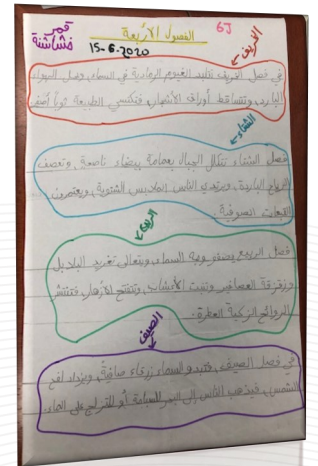 6J
الفصول الأربعة
قمر
فشاشنة
15-6-2020
الخريف
في فصل الخريف تتلبد الغيوم الرمادية في السماء، ويصل الهواء
البارد، وتتساقط أوراق الأشجار، فتكتسي الطبيعة ثوباً أصفر
الشتاء
فصل الشتاء تتكلل الجبال بعمامة بيضاء ناصعة، وتعصف
الرياح الباردة، ويرتدي الناس الملابس الشتوية، ويعتمرون
القبعات الصوفية.
الربيع
فصل الربيع يصفو وجه السماء، ويتعالى تغريد البلابل
وزقزقة العصافير، وتنبت الأعشاب، وتتفتح الأزهار، فتنتشر
الروائح الزكية العطرة.
الصيف
في فصل الصيف، فتبدو السماء زرقاء صافية، ويزداد لفح
الشمس، فيذهب الناس إلى البحر للسباحة أو للتزلج على الماء.